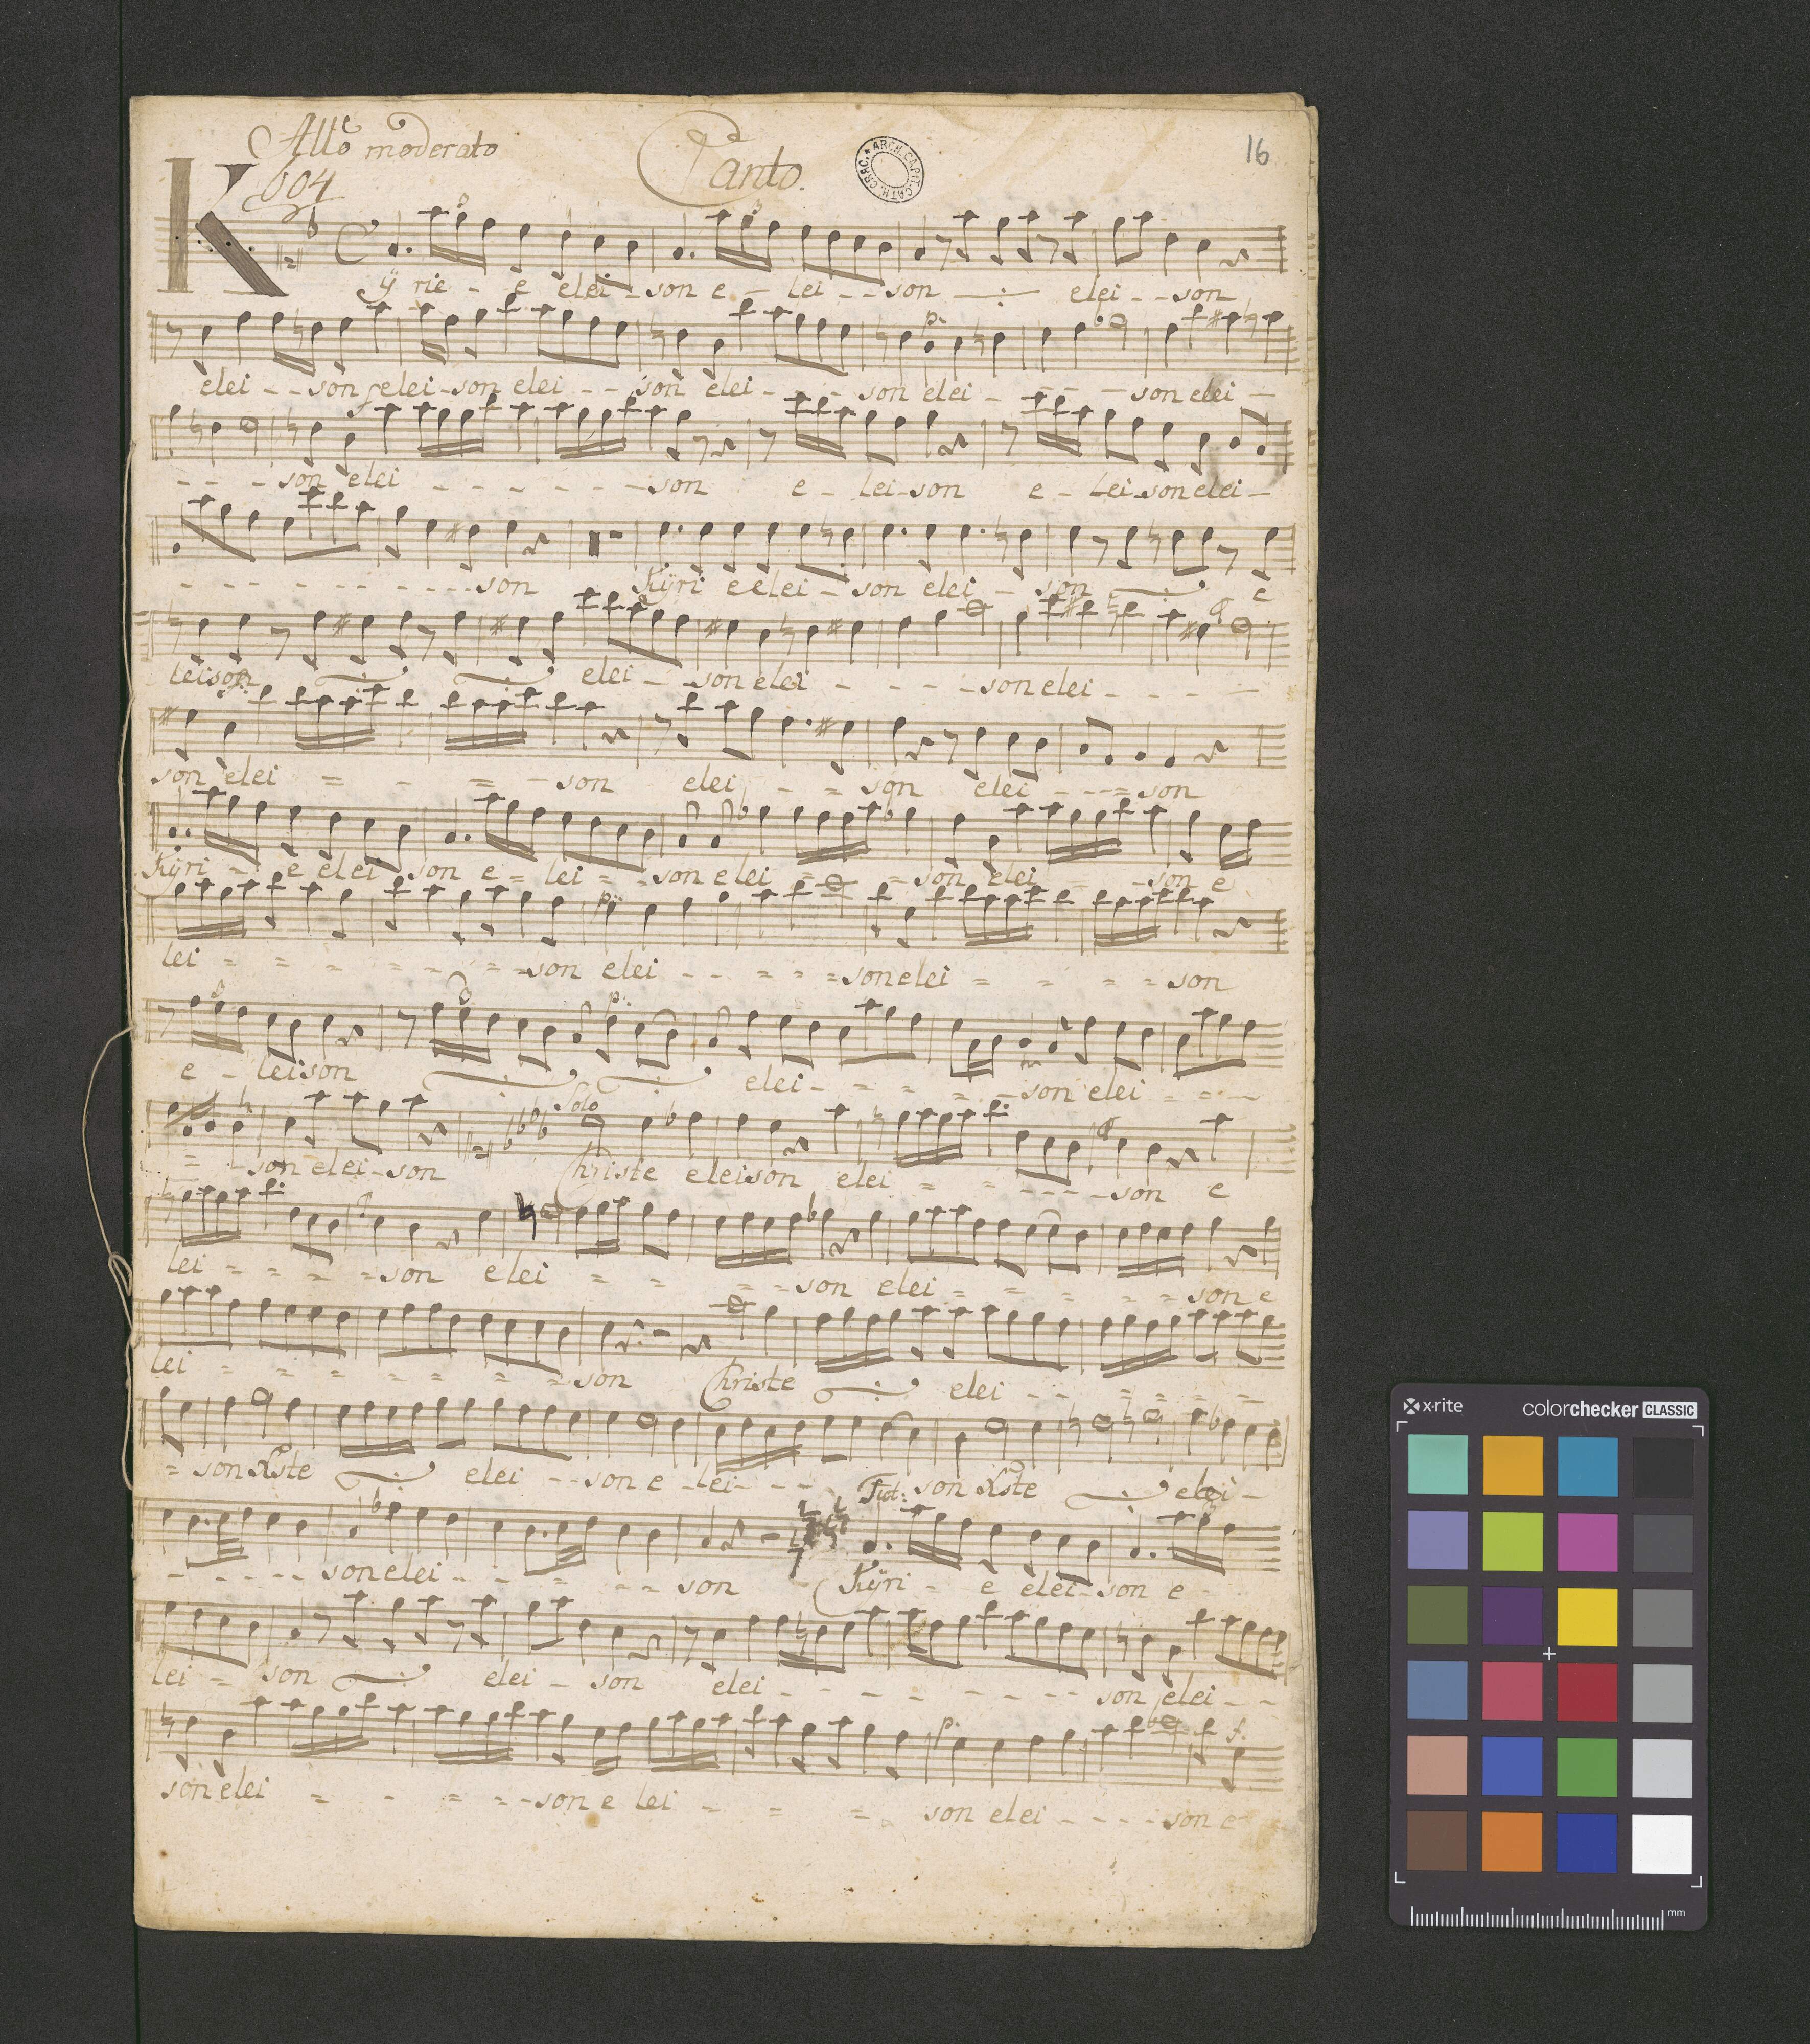 Allò moderato Canto. ARCH. CAPIT. CATH. CRAC. 16
604
Kÿ rie - e elei - son e - lei - - son elei - - son
elei - - son elei - son elei - - son elei - - - son elei - - - - son elei -
- - - son elei - - - - - - - son e - lei - son e - lei - son elei -
- - - - - - - - - - son Kÿri e elei - son elei - son e
leison elei - - son elei - - - - - son elei - - - -
son elei = - = - son elei - = son elei - - - = son
Kÿri - e elei son e = lei = = son elei = = = son elei - - son e
lei = = = = = = = son elei - - = = = son elei = = = = son
e - leison elei - = = = - son elei = = -
= - son elei - son Solo Christe eleison elei = = - - - - son e
lei = = = = son elei = = = = son elei = = = = = son e
lei = = = = = = = son Christe elei - - = = = =
= son Xste elei - - son e - lei - - - - Tut: son Xste elei -
- - - - - son elei - - = - = son Kÿri - e elei - son e -
lei = son elei - son elei - - - - - - - - son elei - -
son elei = - = = - son e lei = = = son elei - - - - son e